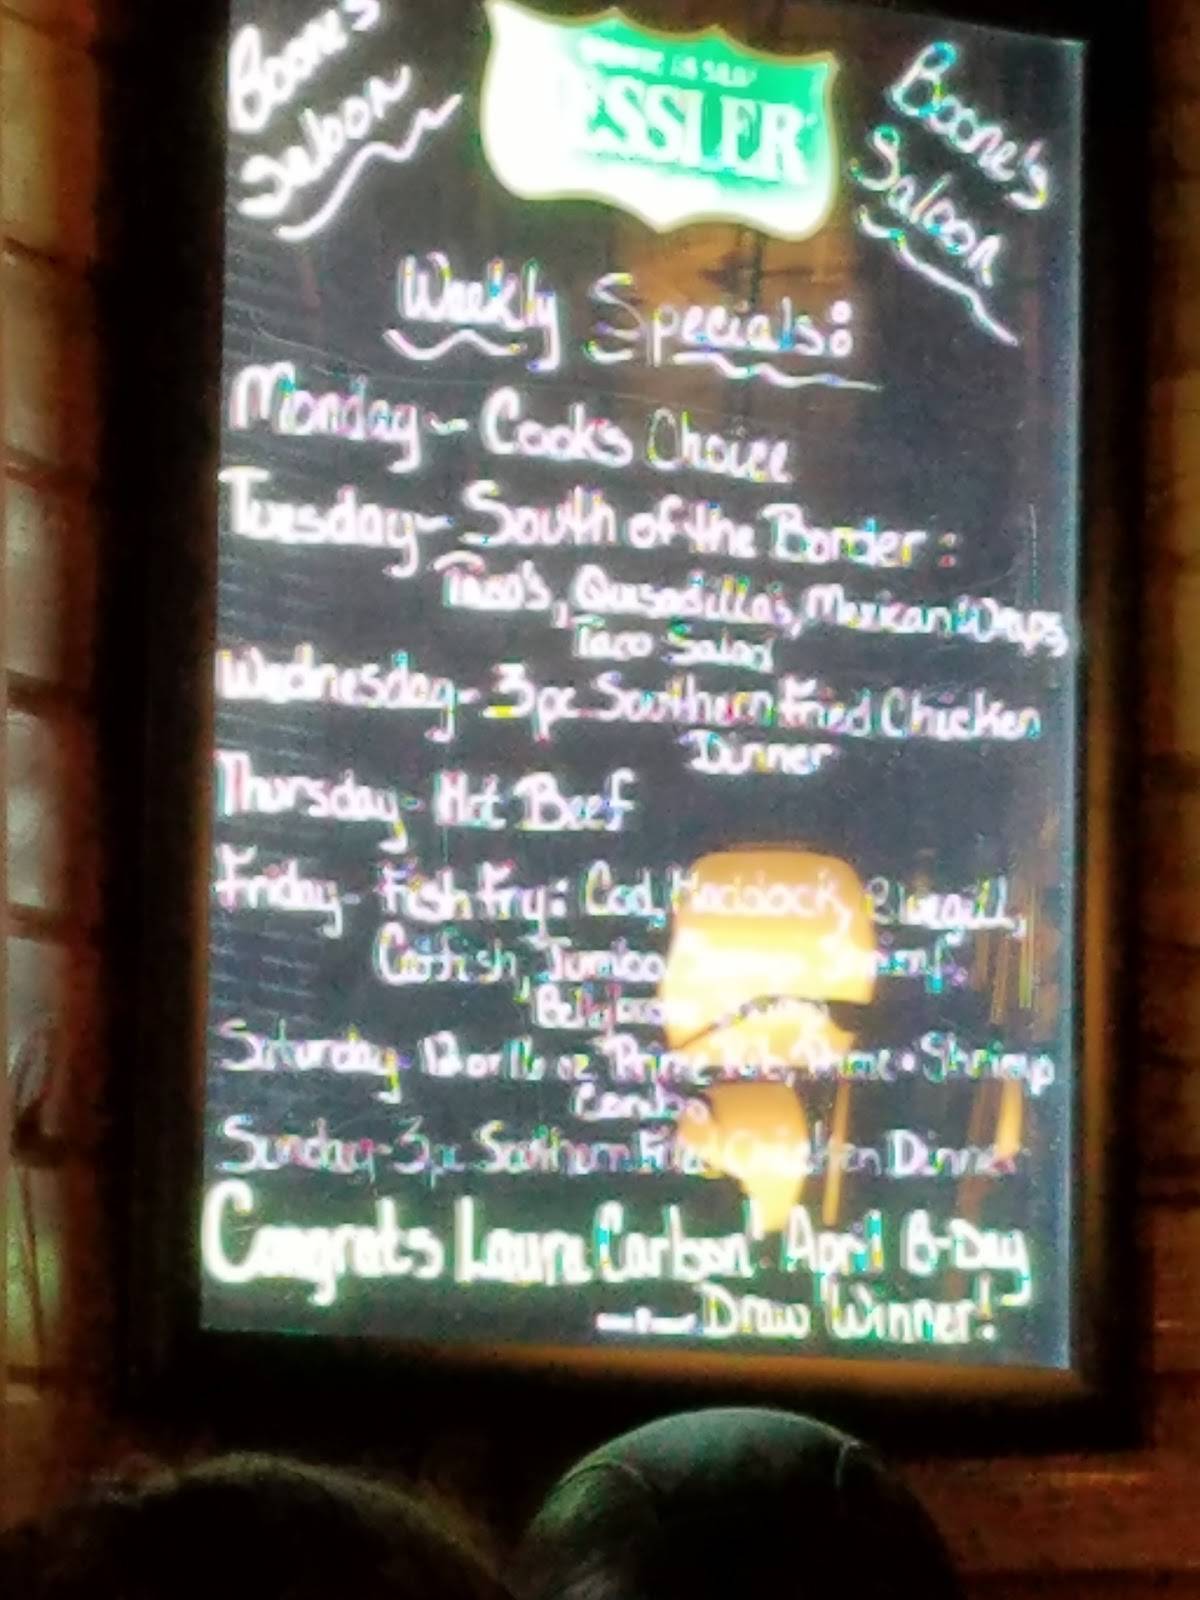 Boone's
Saloon
ESSLER
Boone's
Saloon
Weekly Specials:
Monday - Cook's Choice
Tuesday - South of the Border:
Taco's, Quesadilla's, Mexican Wraps,
Taco Salad
Wednesday - 3pc Southern Fried Chicken
Dinner
Thursday - Hot Beef
Friday - Fish Fry: Cod, Haddock, Bluegill,
Catfish, Jumbo Shrimp,
Saturday - 12 or 16 oz Prime Rib, Prime + Shrimp
Combo
Sunday - 3pc Southern Fried Chicken Dinner
Congrats Laura Carbon! April B-Day
Draw Winner!